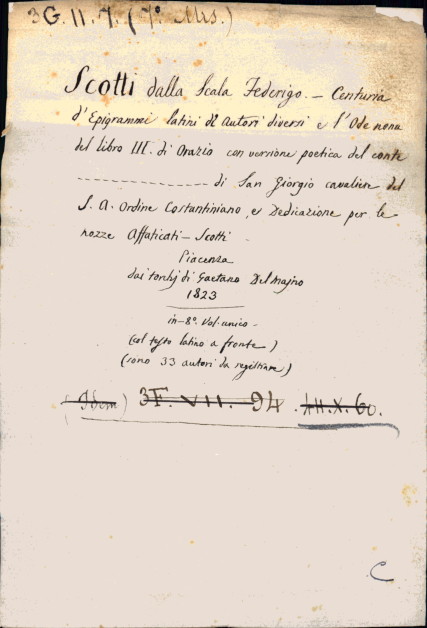 3G. II. 7. (7° Mrs.)
Scotti dalla Scala Federigo. — Centuria
d'Epigrammi latini di Autori diversi e l'Ode nona
del libro III. di Orazio con versione poetica del conte
--------------- di San Giorgio cavaliere del
S. A. Ordine Costantiniano, e Dedicazione per le
nozze Affaticati — Scotti.
Piacenza
dai torchj di Gaetano Del Majno
1823
in-8°. Vol. unico -
(col testo latino a fronte)
(sono 33 autori da registrare)
(Idem) 3F. VII. 94. X. 60.
C